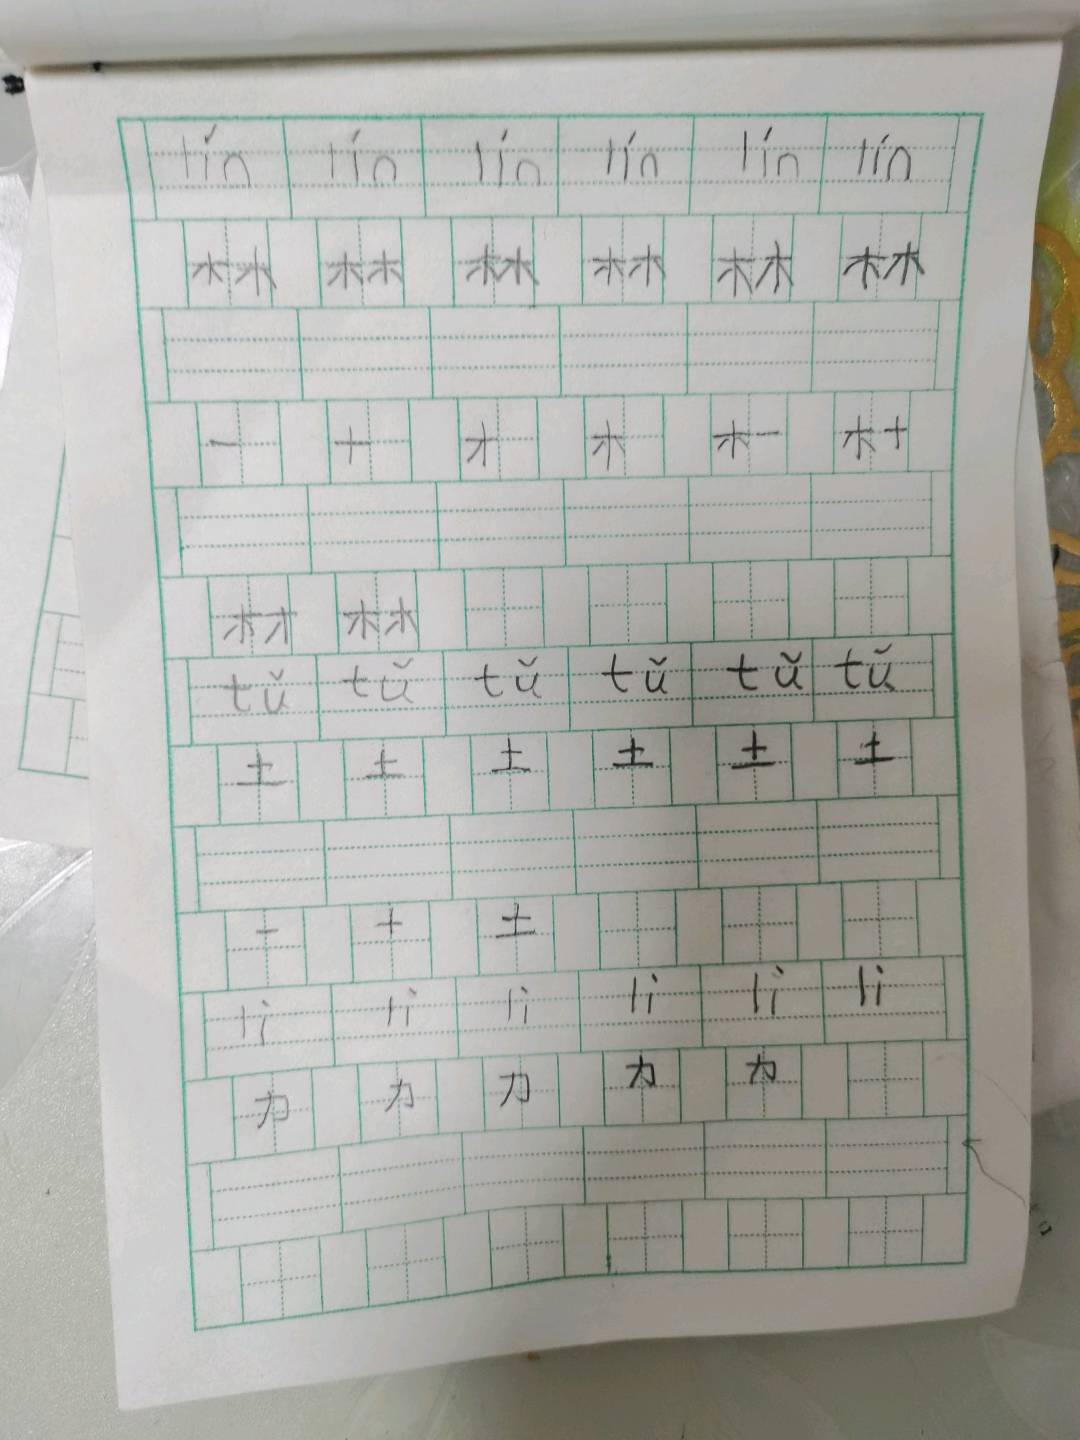 lín lín lín lín lín lín
林 林 林 林 林 林
一 十 才 木 木一 木十
木才 林
tǔ tǔ tǔ tǔ tǔ tǔ
土 土 土 土 土 土
一 十 土
lì lì lì lì lì lì
力 力 力 力 力